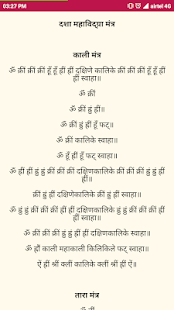 03:27 PM
airtel 4G
दशा महाविद्या मंत्र
काली मंत्र
ॐ क्रीं क्रीं क्रीं हूँ हूँ ह्रीं ह्रीं दक्षिणे कालिके क्रीं क्रीं क्रीं हूँ हूँ ह्रीं
ह्रीं स्वाहा॥
ॐ क्रीं
क्रीं हुं ह्रीं॥
क्रीं हुं ह्रीं हूँ फट्॥
ॐ क्रीं कालिके स्वाहा॥
ॐ हुं हुं फट् स्वाहा॥
ॐ ह्रीं ह्रीं हुं हुं क्रीं क्रीं क्रीं दक्षिणकालिके क्रीं क्रीं क्रीं हुं हुं ह्रीं
ह्रीं॥
क्रीं हुं ह्रीं दक्षिणेकालिके क्रीं हुं ह्रीं स्वाहा॥
ॐ हुं हुं क्रीं क्रीं क्रीं ह्रीं ह्रीं दक्षिणकालिके हुं हुं क्रीं क्रीं क्रीं ह्रीं
ह्रीं स्वाहा॥
ॐ क्रीं क्रीं क्रीं हुं हुं ह्रीं ह्रीं दक्षिणकालिके स्वाहा॥
ॐ ह्रौं काली महाकाली किलिकिले फट् स्वाहा॥
ऐं ह्रीं श्रीं क्लीं कालिके क्लीं श्रीं ह्रीं ऐं॥
तारा मंत्र